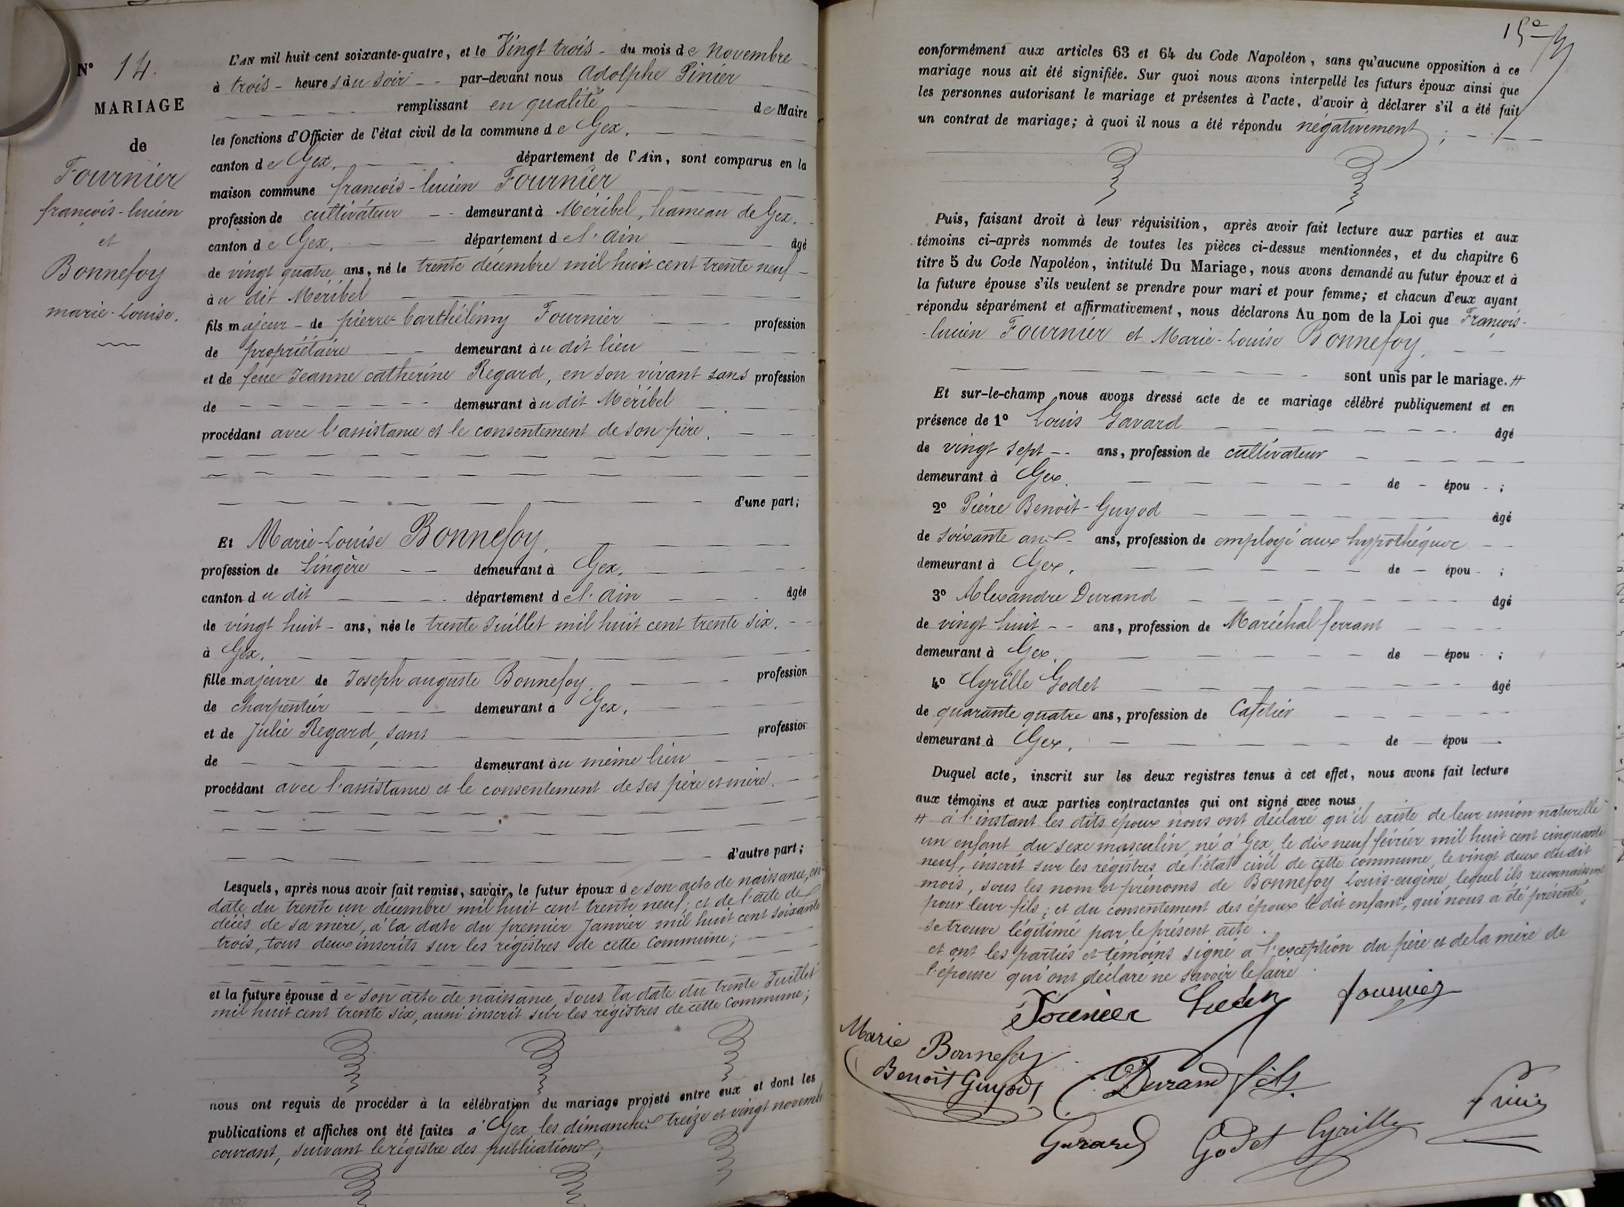 N° 14.
MARIAGE
de
Fournier
françois-lucien
et
Bonnefoy
marie-Louise.
L'AN mil huit cent soixante-quatre, et le Vingt trois du mois de novembre
à trois heures du soir par-devant nous Adolphe Pinier
remplissant en qualité de Maire
les fonctions d'Officier de l'état civil de la commune de Gex.
canton de Gex, département de l'Ain, sont comparus en la
maison commune françois-lucien Fournier
profession de cultivateur demeurant à Méribel, hameau de Gex.
canton de Gex, département de l'Ain âgé
de vingt quatre ans, né le trente décembre mil huit cent trente neuf
à u dit Méribel
fils majeur de pierre-barthélemy Fournier profession
de propriétaire demeurant à u dit lieu
et de feue Jeanne catherine Regard, en son vivant sans profession
de demeurant à u dit Méribel
procédant avec l'assistance et le consentement de son père.
d'une part;
Et Marie-Louise Bonnefoy.
profession de Lingère demeurant à Gex.
canton d u dit département de l'Ain âgée
de vingt huit ans, née le trente Juillet mil huit cent trente six.
à Gex.
fille majeure de Joseph auguste Bonnefoy profession
de charpentier demeurant à Gex.
et de Julie Regard, sans profession
de demeurant au même lieu
procédant avec l'assistance et le consentement de ses père et mère.
d'autre part;
Lesquels, après nous avoir fait remise, savoir, le futur époux de son acte de naissance, en
date du trente un décembre mil huit cent trente neuf; et de l'acte de
décès de sa mère, à la date du premier Janvier mil huit cent soixante
trois, tous deux inscrits sur les régistres de cette commune;
et la future épouse de son acte de naissance, sous la date du trente Juillet
mil huit cent trente six, aussi inscrit sur les régistres de cette commune;
nous ont requis de procéder à la célébration du mariage projeté entre eux et dont les
publications et affiches ont été faites à Gex les dimanches treize et vingt novembre
courant, suivant le régistre des publications;
conformément aux articles 63 et 64 du Code Napoléon, sans qu'aucune opposition à ce
mariage nous ait été signifiée. Sur quoi nous avons interpellé les futurs époux ainsi que
les personnes autorisant le mariage et présentes à l'acte, d'avoir à déclarer s'il a été fait
un contrat de mariage; à quoi il nous a été répondu négativement;
Puis, faisant droit à leur réquisition, après avoir fait lecture aux parties et aux
témoins ci-après nommés de toutes les pièces ci-dessus mentionnées, et du chapitre 6
titre 5 du Code Napoléon, intitulé Du Mariage, nous avons demandé au futur époux et à
la future épouse s'ils veulent se prendre pour mari et pour femme; et chacun d'eux ayant
répondu séparément et affirmativement, nous déclarons Au nom de la Loi que François-
lucien Fournier et Marie-Louise Bonnefoy.
sont unis par le mariage. #
Et sur-le-champ nous avons dressé acte de ce mariage célébré publiquement et en
présence de 1° Louis Gavard âgé
de vingt sept ans, profession de cultivateur
demeurant à Gex. de épou ;
2° Pierre Benoit-Guyod âgé
de soixante ans ans, profession de employé aux hypothèques
demeurant à Gex. de épou ;
3° Alexandre Durand âgé
de vingt huit ans, profession de Maréchal ferrant
demeurant à Gex. de épou ;
4° Cyrille Godet âgé
de quarante quatre ans, profession de Cafetier
demeurant à Gex. de épou
Duquel acte, inscrit sur les deux registres tenus à cet effet, nous avons fait lecture
aux témoins et aux parties contractantes qui ont signé avec nous
# à l'instant les dits époux nous ont déclaré qu'il existe de leur union naturelle
un enfant du sexe masculin, né à Gex, le dix neuf février mil huit cent cinquante
neuf, inscrit sur les régistres de l'état civil de cette commune, le vingt deux dudit
mois, sous les nom et prénoms de Bonnefoy Louis-eugène, lequel ils reconnaissent
pour leur fils; et du consentement des époux le dit enfant, qui nous a été présenté,
se trouve légitimé par le présent acte.
et ont les parties et témoins signé à l'exception du père et de la mère de
l'épouse qui ont déclaré ne savoir le faire.
Fournier Fournier
Marie Bonnefoy
Benoit Guyod Durand fils
Gavard Godet Cyrille Pinier